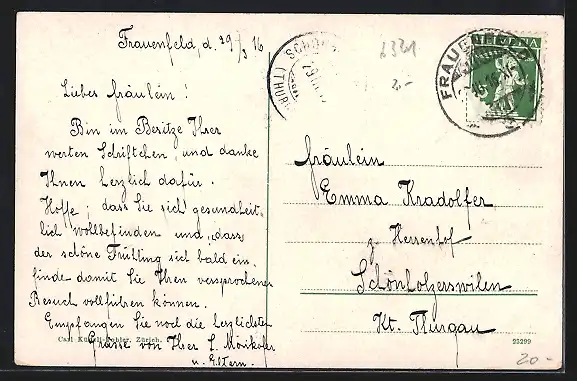 Frauenfeld, d. 29/3 16
Liebes Fräulein!
Bin im Besitze Ihrer
werten Schriftchen, und danke
Ihnen herzlich dafür.
Hoffe, dass Sie sich gesundheit-
lich wohlbefinden und, dass
der schöne Frühling sich bald ein-
finde damit Sie Ihren versprochenen
Besuch vollführen können.
Empfangen Sie noch die herzlichsten
Grüsse von Ihrer L. Mörikofer
u. Eltern.
Carl Künzli-Tobler, Zürich.
(THURG)
HELVETIA
FRAUENFELD
Fräulein
Emma Kradolfer
z. Herrenhof
Schönholzerswilen
Kt. Thurgau
23299
20.-